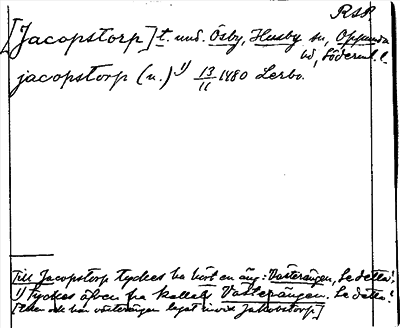 RSR
[Jacopstorp] t. und. Ösby, Husby sn, Oppunda
hd, Söderml. l.
jacopstorp (u.) 1) 13/11 1480 Lerbo.
Till Jacopstorp tyckes ha hört en äng: Västerängen, Se detta!
1) tyckes äfven ha kallats Västerängen. Se detta!
[Eller ock har västerängen legat invid Jakobstorp]